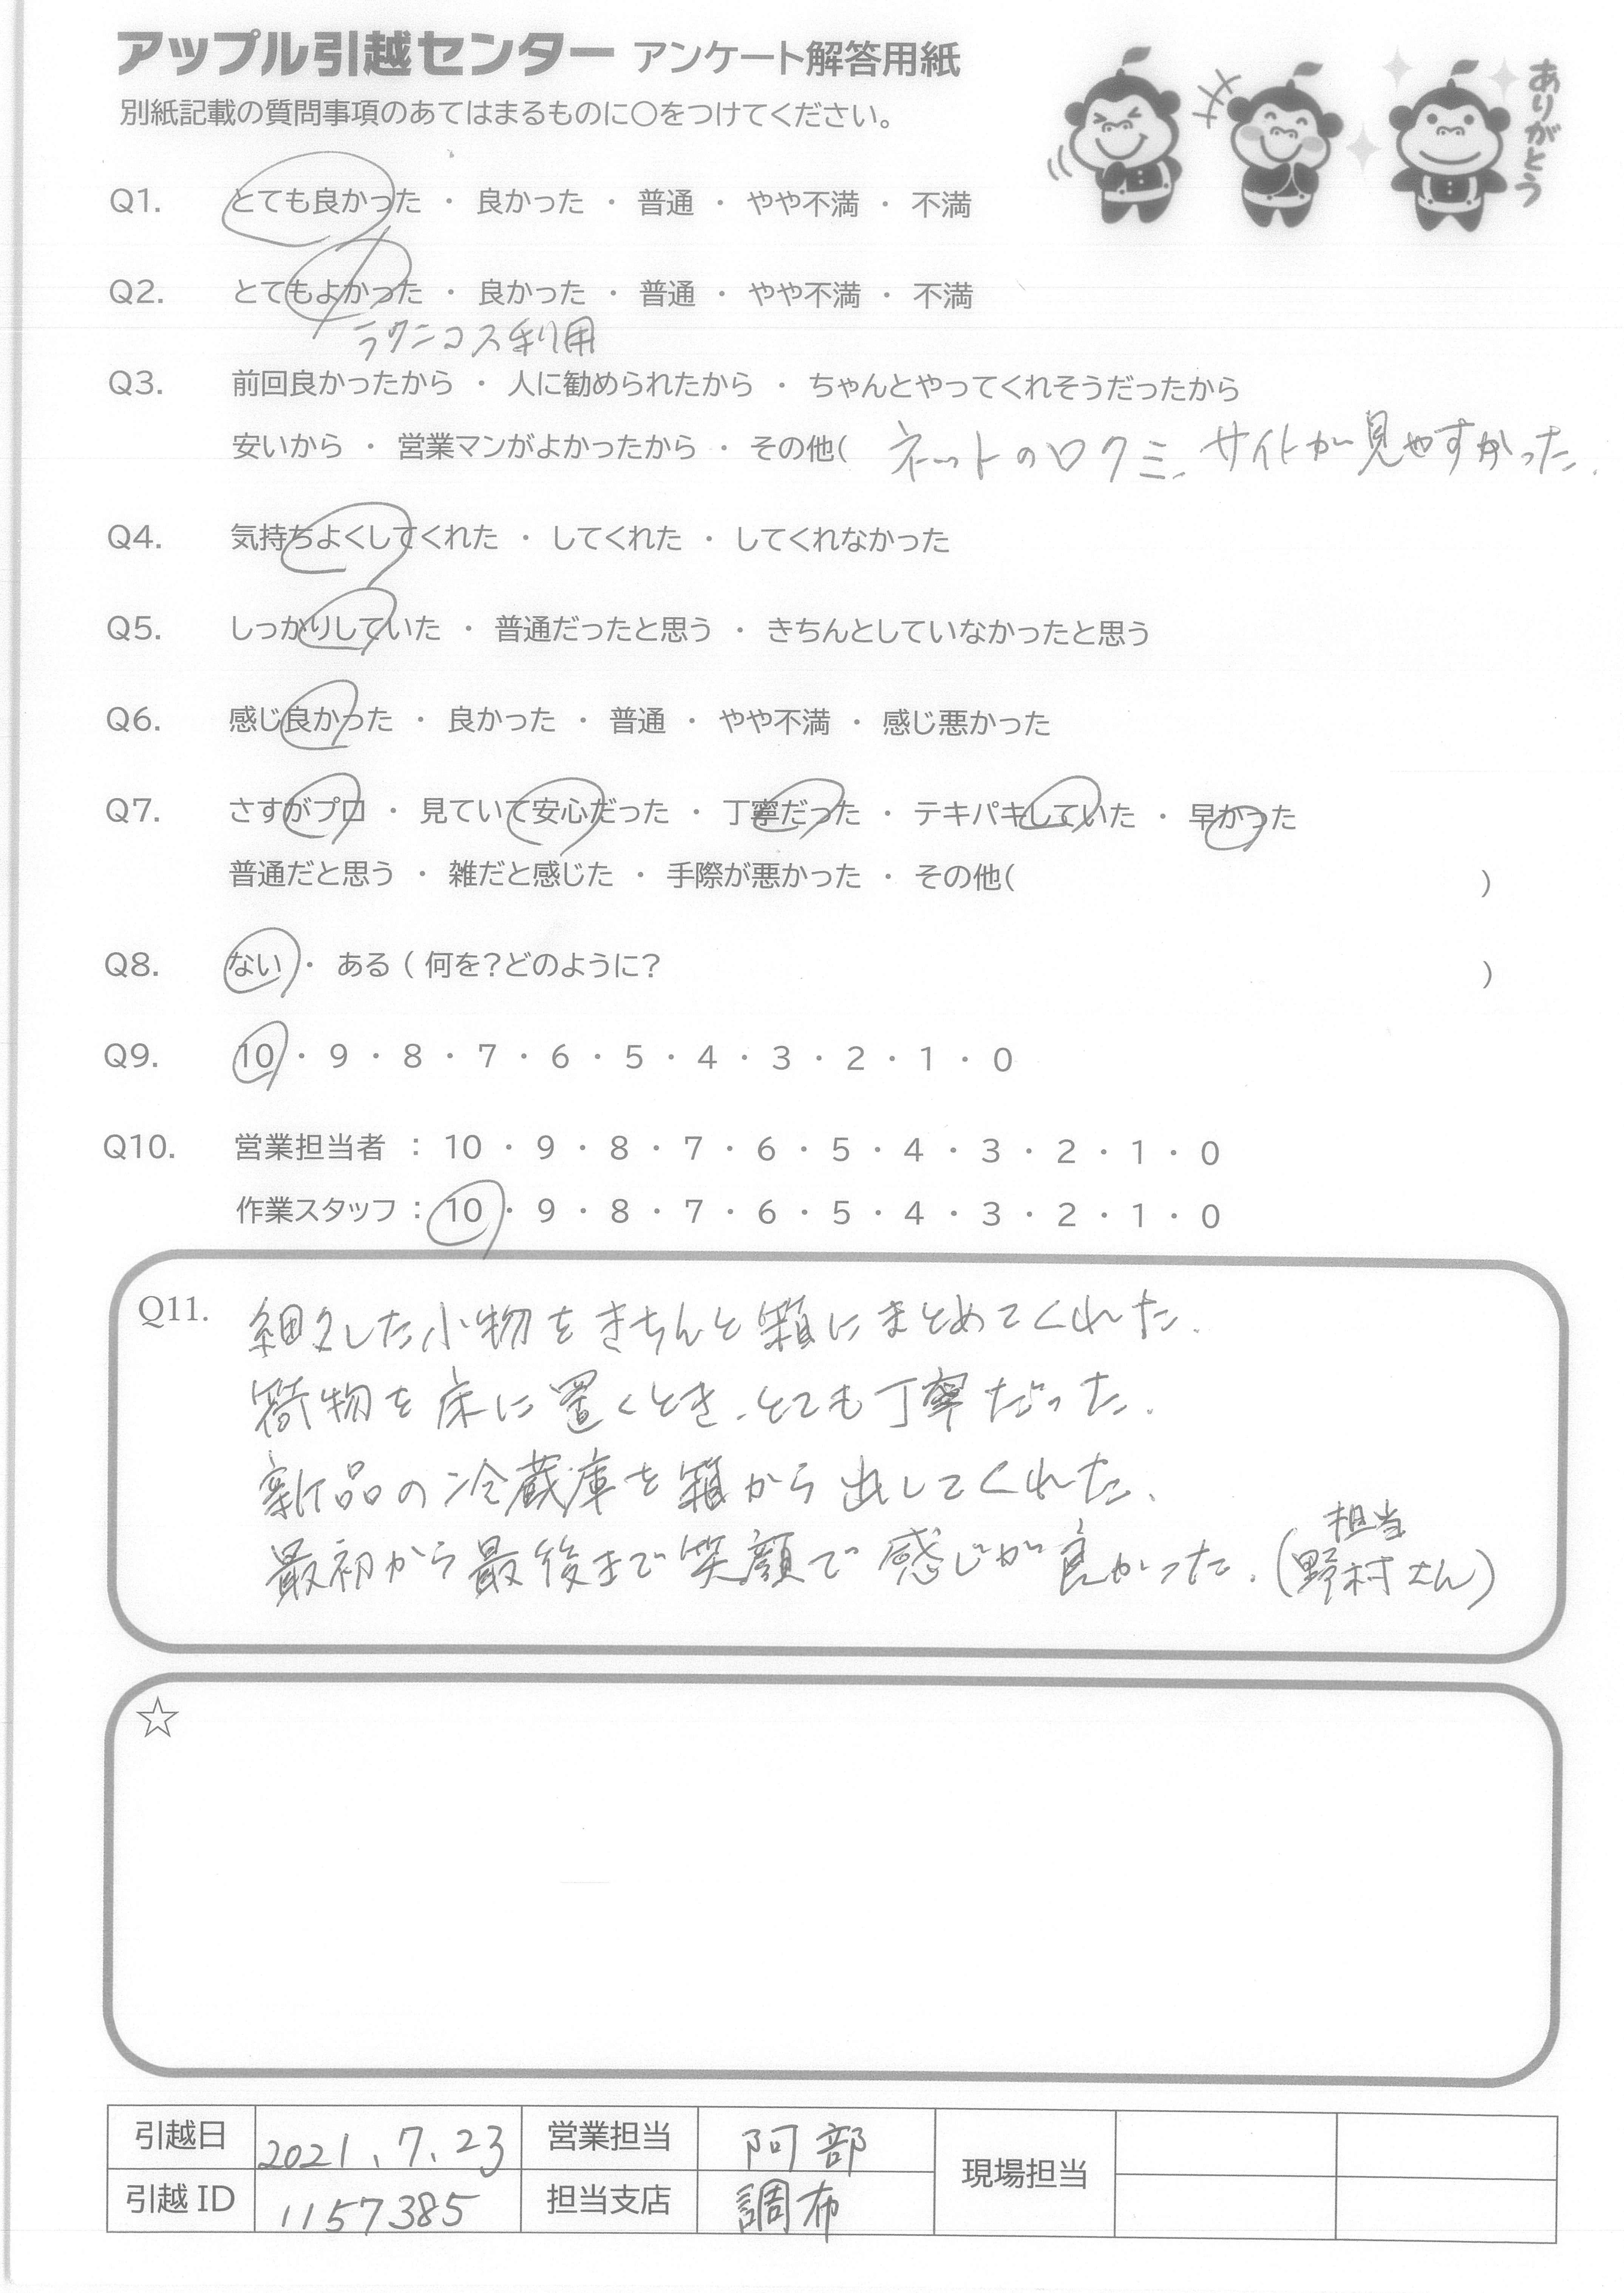 アップル引越センター アンケート解答用紙
別紙記載の質問事項のあてはまるものに〇をつけてください。
ありがとう
Q1. とても良かった ・ 良かった ・ 普通 ・ やや不満 ・ 不満
Q2. とてもよかった ・ 良かった ・ 普通 ・ やや不満 ・ 不満
ラクニコス利用
Q3. 前回良かったから ・ 人に勧められたから ・ ちゃんとやってくれそうだったから
安いから ・ 営業マンがよかったから ・ その他( ネットの口クミ、サイトが見やすかった.
Q4. 気持ちよくしてくれた ・ してくれた ・ してくれなかった
Q5. しっかりしていた ・ 普通だったと思う ・ きちんとしていなかったと思う
Q6. 感じ良かった ・ 良かった ・ 普通 ・ やや不満 ・ 感じ悪かった
Q7. さすがプロ ・ 見ていて安心だった ・ 丁寧だった ・ テキパキしていた ・ 早かった
普通だと思う ・ 雑だと感じた ・ 手際が悪かった ・ その他( )
Q8. ない ・ ある ( 何を?どのように? )
Q9. 10 ・ 9 ・ 8 ・ 7 ・ 6 ・ 5 ・ 4 ・ 3 ・ 2 ・ 1 ・ 0
Q10. 営業担当者 : 10 ・ 9 ・ 8 ・ 7 ・ 6 ・ 5 ・ 4 ・ 3 ・ 2 ・ 1 ・ 0
作業スタッフ : 10 ・ 9 ・ 8 ・ 7 ・ 6 ・ 5 ・ 4 ・ 3 ・ 2 ・ 1 ・ 0
Q11. 細々した小物をきちんと箱にまとめてくれた.
荷物を床に置くとき、とても丁寧だった.
新品の冷蔵庫を箱から出してくれた.
最初から最後まで笑顔で感じが良かった. (担当 野村さん)
☆
引越日 2021.7.23 営業担当 阿部 現場担当
引越ID 1157385 担当支店 調布